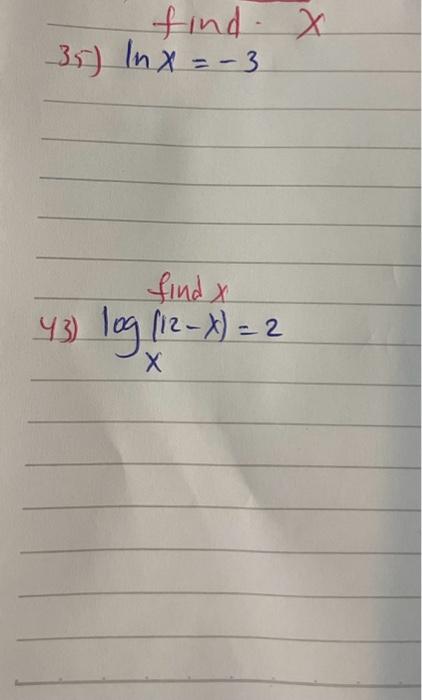 find. x
35) ln x = -3
find x
43) log (12-x) = 2
x